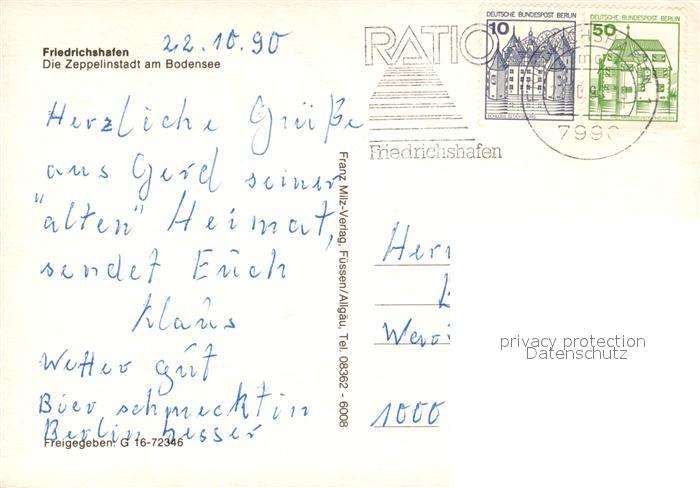 22.10.90
Friedrichshafen
Die Zeppelinstadt am Bodensee
Herzliche Grüße
aus Gerd seiner
"alten" Heimat,
sendet Euch
Klaus
Wetter gut
Bier schmeckt in
Berlin besser
Freigegeben: G 16-72346
Franz Milz-Verlag, Füssen/Allgäu, Tel. 08362 - 6008
RATIO
Friedrichshafen
10 DEUTSCHE BUNDESPOST BERLIN
50 DEUTSCHE BUNDESPOST BERLIN
SCHLOSS GLÜCKSBURG
7990
Herr
1000
privacy protection
Datenschutz